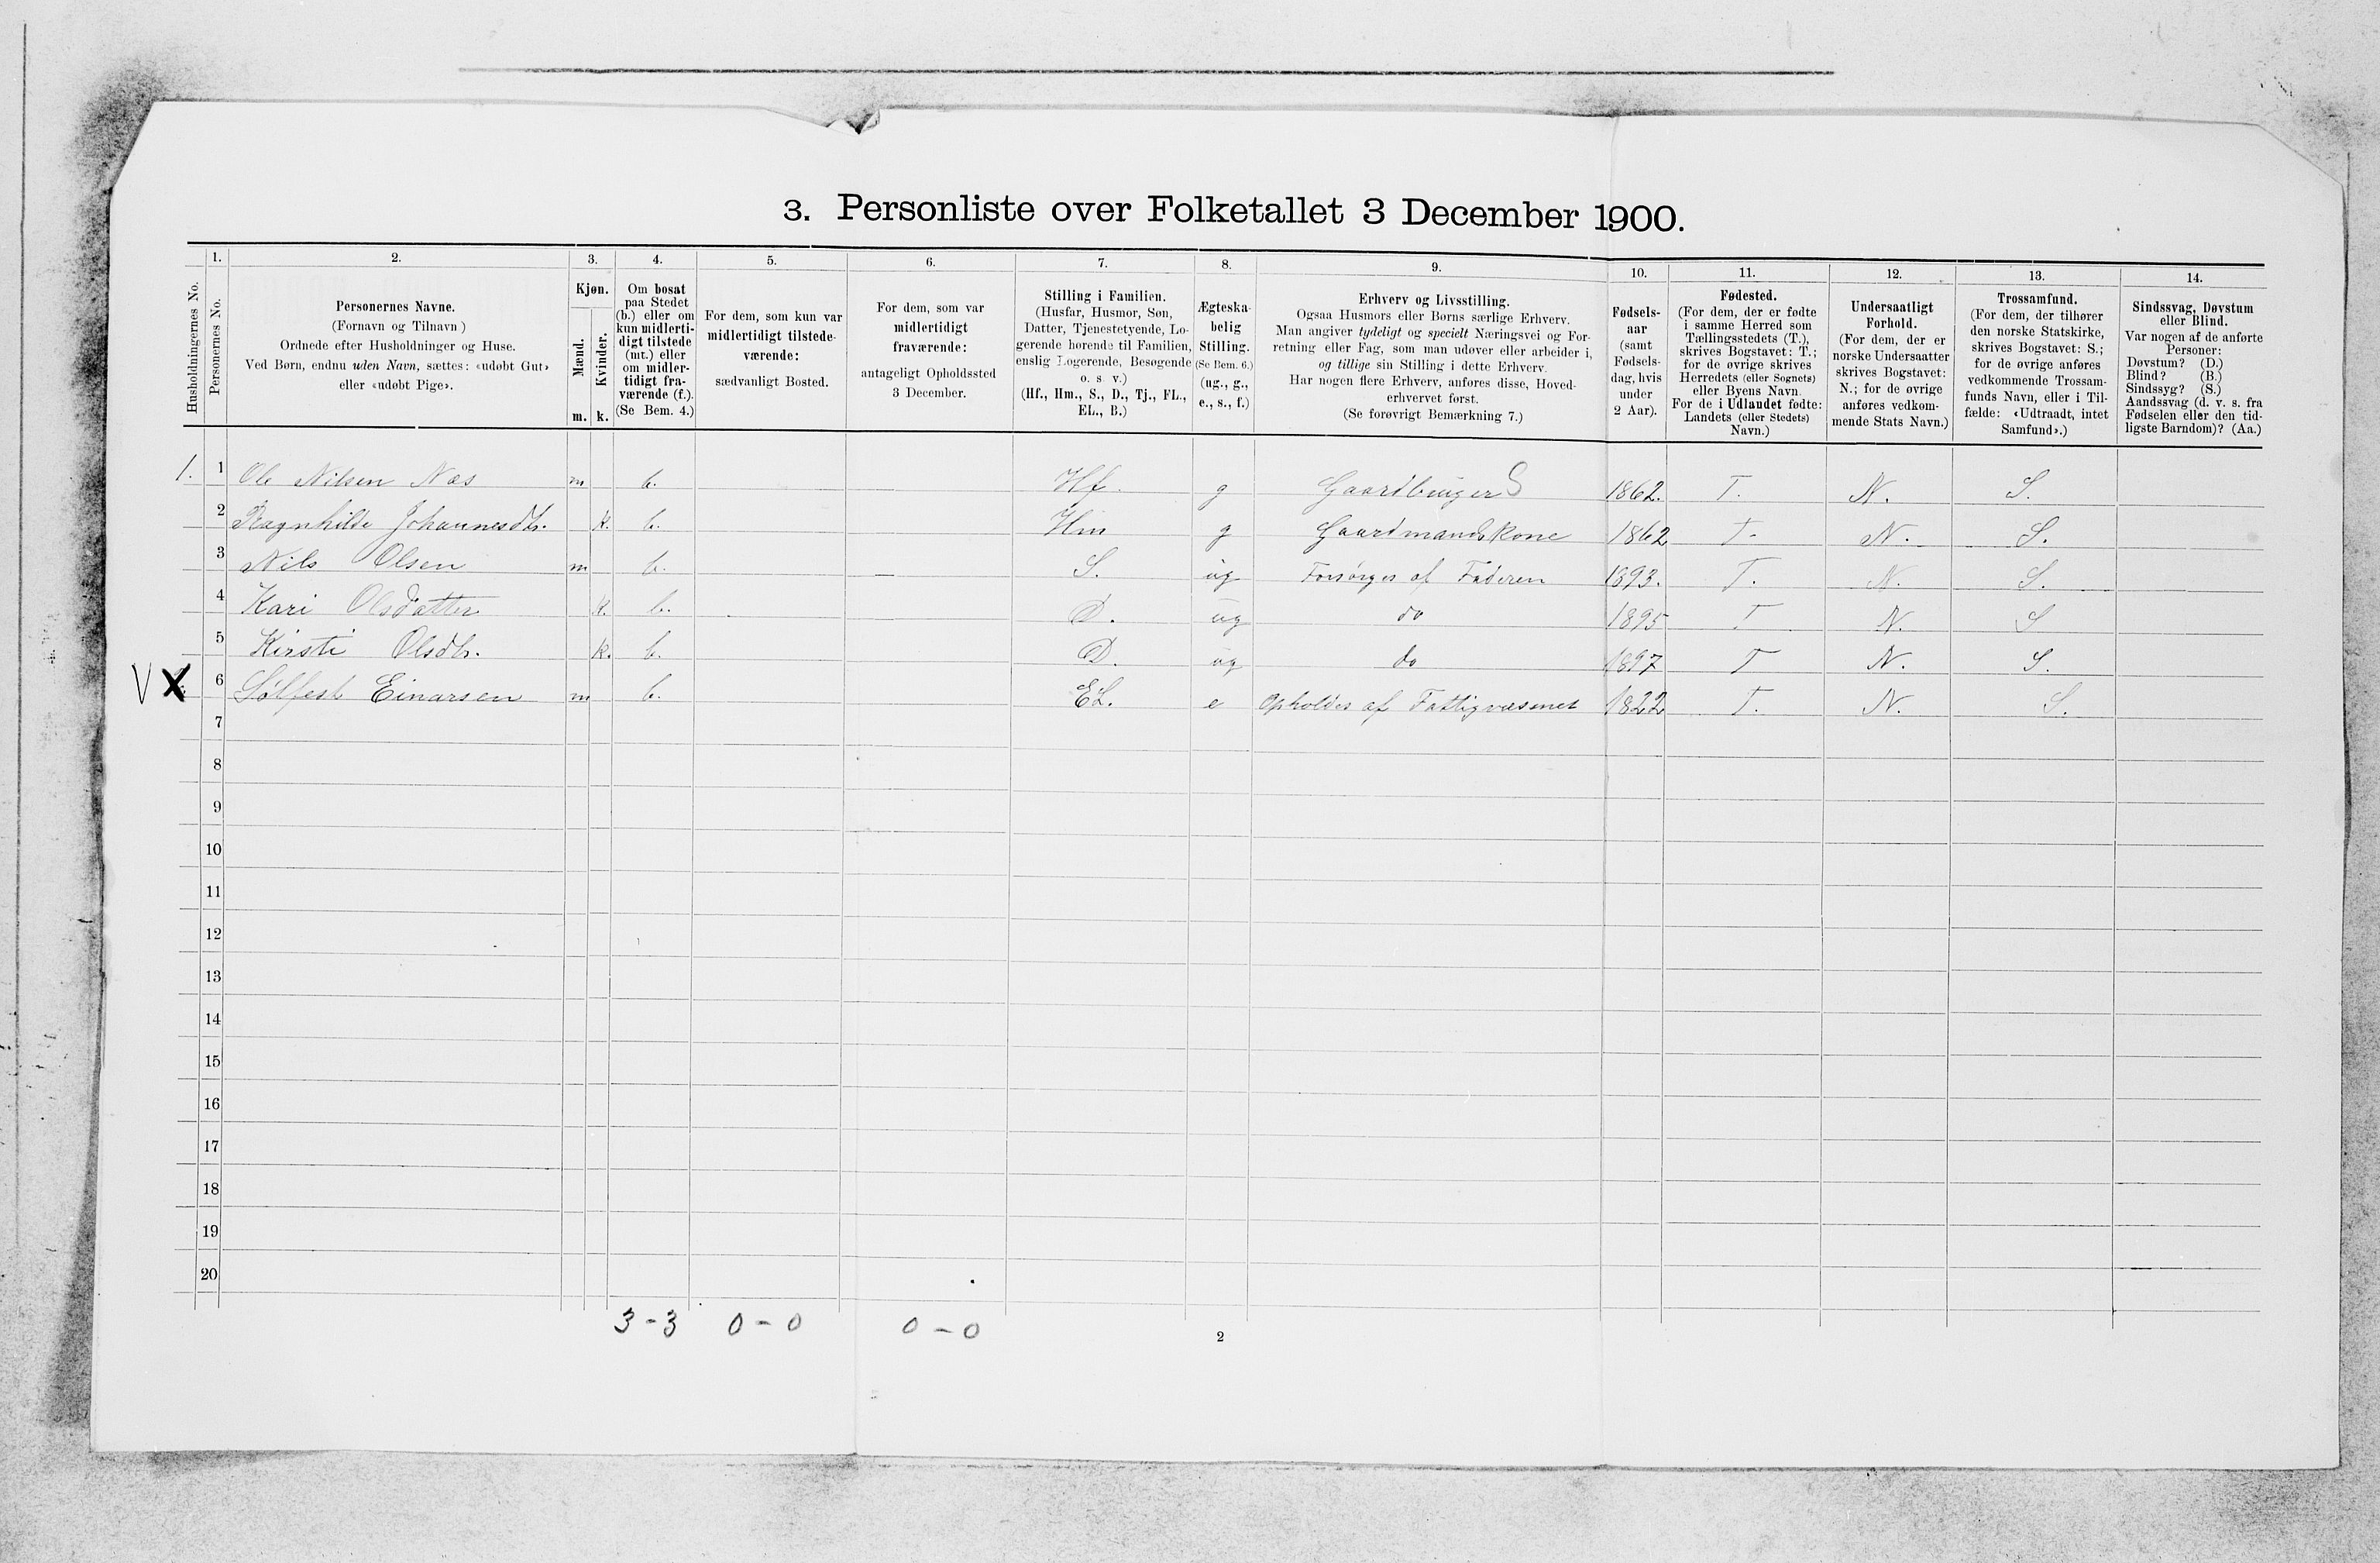 3. Personliste over Folketallet 3 December 1900.
Husholdningernes No.
1.
Personernes No.
2.
Personernes Navne.
(Fornavn og Tilnavn)
Ordnede efter Husholdninger og Huse.
Ved Børn, endnu uden Navn, sættes: «udøbt Gut»
eller «udøbt Pige».
3.
Kjøn.
Mænd.
Kvinder.
m. k.
4.
Om bosat
paa Stedet
(b.) eller om
kun midlerti-
digt tilstede
(mt.) eller
om midler-
tidigt fra-
værende (f.).
(Se Bem. 4.)
5.
For dem, som kun var
midlertidigt tilstede-
værende:
sædvanligt Bosted.
6.
For dem, som var
midlertidigt
fraværende:
antageligt Opholdssted
3 December.
7.
Stilling i Familien.
(Husfar, Husmor, Søn,
Datter, Tjenestetyende, Lo-
gerende hørende til Familien,
enslig Logerende, Besøgende
o. s. v.)
(Hf., Hm., S., D., Tj., FL.,
EL., B.)
8.
Ægteska-
belig
Stilling.
(Se Bem. 6.)
(ug., g.,
e., s., f.)
9.
Erhverv og Livsstilling.
Ogsaa Husmors eller Børns særlige Erhverv.
Man angiver tydeligt og specielt Næringsvei og For-
retning eller Fag, som man udøver eller arbeider i,
og tillige sin Stilling i dette Erhverv.
Har nogen flere Erhverv, anføres disse, Hoved-
erhvervet først.
(Se forøvrigt Bemærkning 7.)
10.
Fødsels-
aar
(samt
Fødsels-
dag, hvis
under
2 Aar).
11.
Fødested.
(For dem, der er fødte
i samme Herred som
Tællingsstedets (T.),
skrives Bogstavet: T.;
for de øvrige skrives
Herredets (eller Sognets)
eller Byens Navn.
For de i Udlandet fødte:
Landets (eller Stedets)
Navn.)
12.
Undersaatligt
Forhold.
(For dem, der er
norske Undersaatter
skrives Bogstavet:
N.; for de øvrige
anføres vedkom-
mende Stats Navn.)
13.
Trossamfund.
(For dem, der tilhører
den norske Statskirke,
skrives Bogstavet: S.;
for de øvrige anføres
vedkommende Trossam-
funds Navn, eller i Til-
fælde: «Udtraadt, intet
Samfund».)
14.
Sindssvag, Døvstum
eller Blind.
Var nogen af de anførte
Personer:
Døvstum? (D.)
Blind? (B.)
Sindssyg? (S.)
Aandssvag (d. v. s. fra
Fødselen eller den tid-
ligste Barndom)? (Aa.)
1. 1 Ole Nilsen Næs m b. Hf. g Gaardbruger S 1862. T. N. S.
2 Ragnhilde Johannesdtr. k. b. Hm g Gaardmandskone 1862 T. N. S.
3 Nils Olsen m b. S. ug Forsørges af Faderen 1893. T. N. S.
4 Kari Olsdatter k. b. D. ug do 1895 T N. S
5 Kirsti Olsdtr. k. b. D. ug do 1897 T N. S.
V X 6 Sølfest Einarsen m b. EL. e Opholdes af Fattigvæsenet 1822 T. N. S.
7
8
9
10
11
12
13
14
15
16
17
18
19
20
3 - 3 0 - 0 0 - 0
2